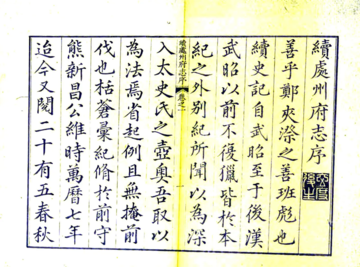 續處州府志序
善乎鄭夾漈之善班彪也
續史記自武昭至于後漢
武昭以前不復獵皆於本
紀之外別紀所聞以為深
續處州府志序 卷之一
入太史氏之壺奧吾取以
為法焉省起例且無掩前
伐也栝蒼彙紀脩於前守
熊新昌公維時萬曆七年
迨今又閱二十有五春秋